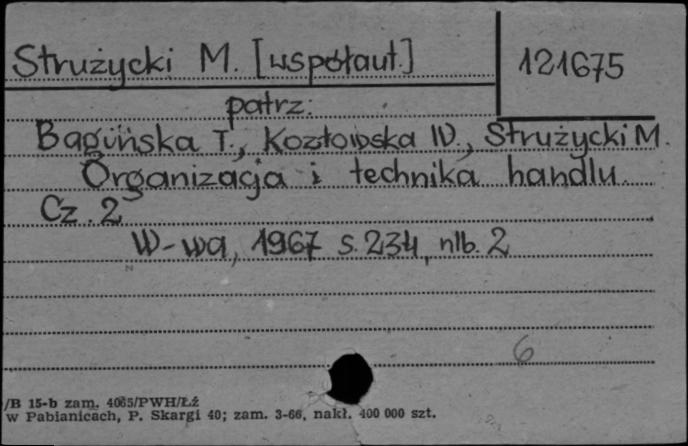 Strużycki M. [współaut.]
121675
patrz:
Bagińska T., Kozłowska W., Strużycki M.
Organizacja i technika handlu.
Cz. 2
W-wa, 1967 s. 234, nlb. 2
6
/B 15-b zam. 4065/PWH/Łź
w Pabianicach, P. Skargi 40; zam. 3-66, nakł. 400 000 szt.